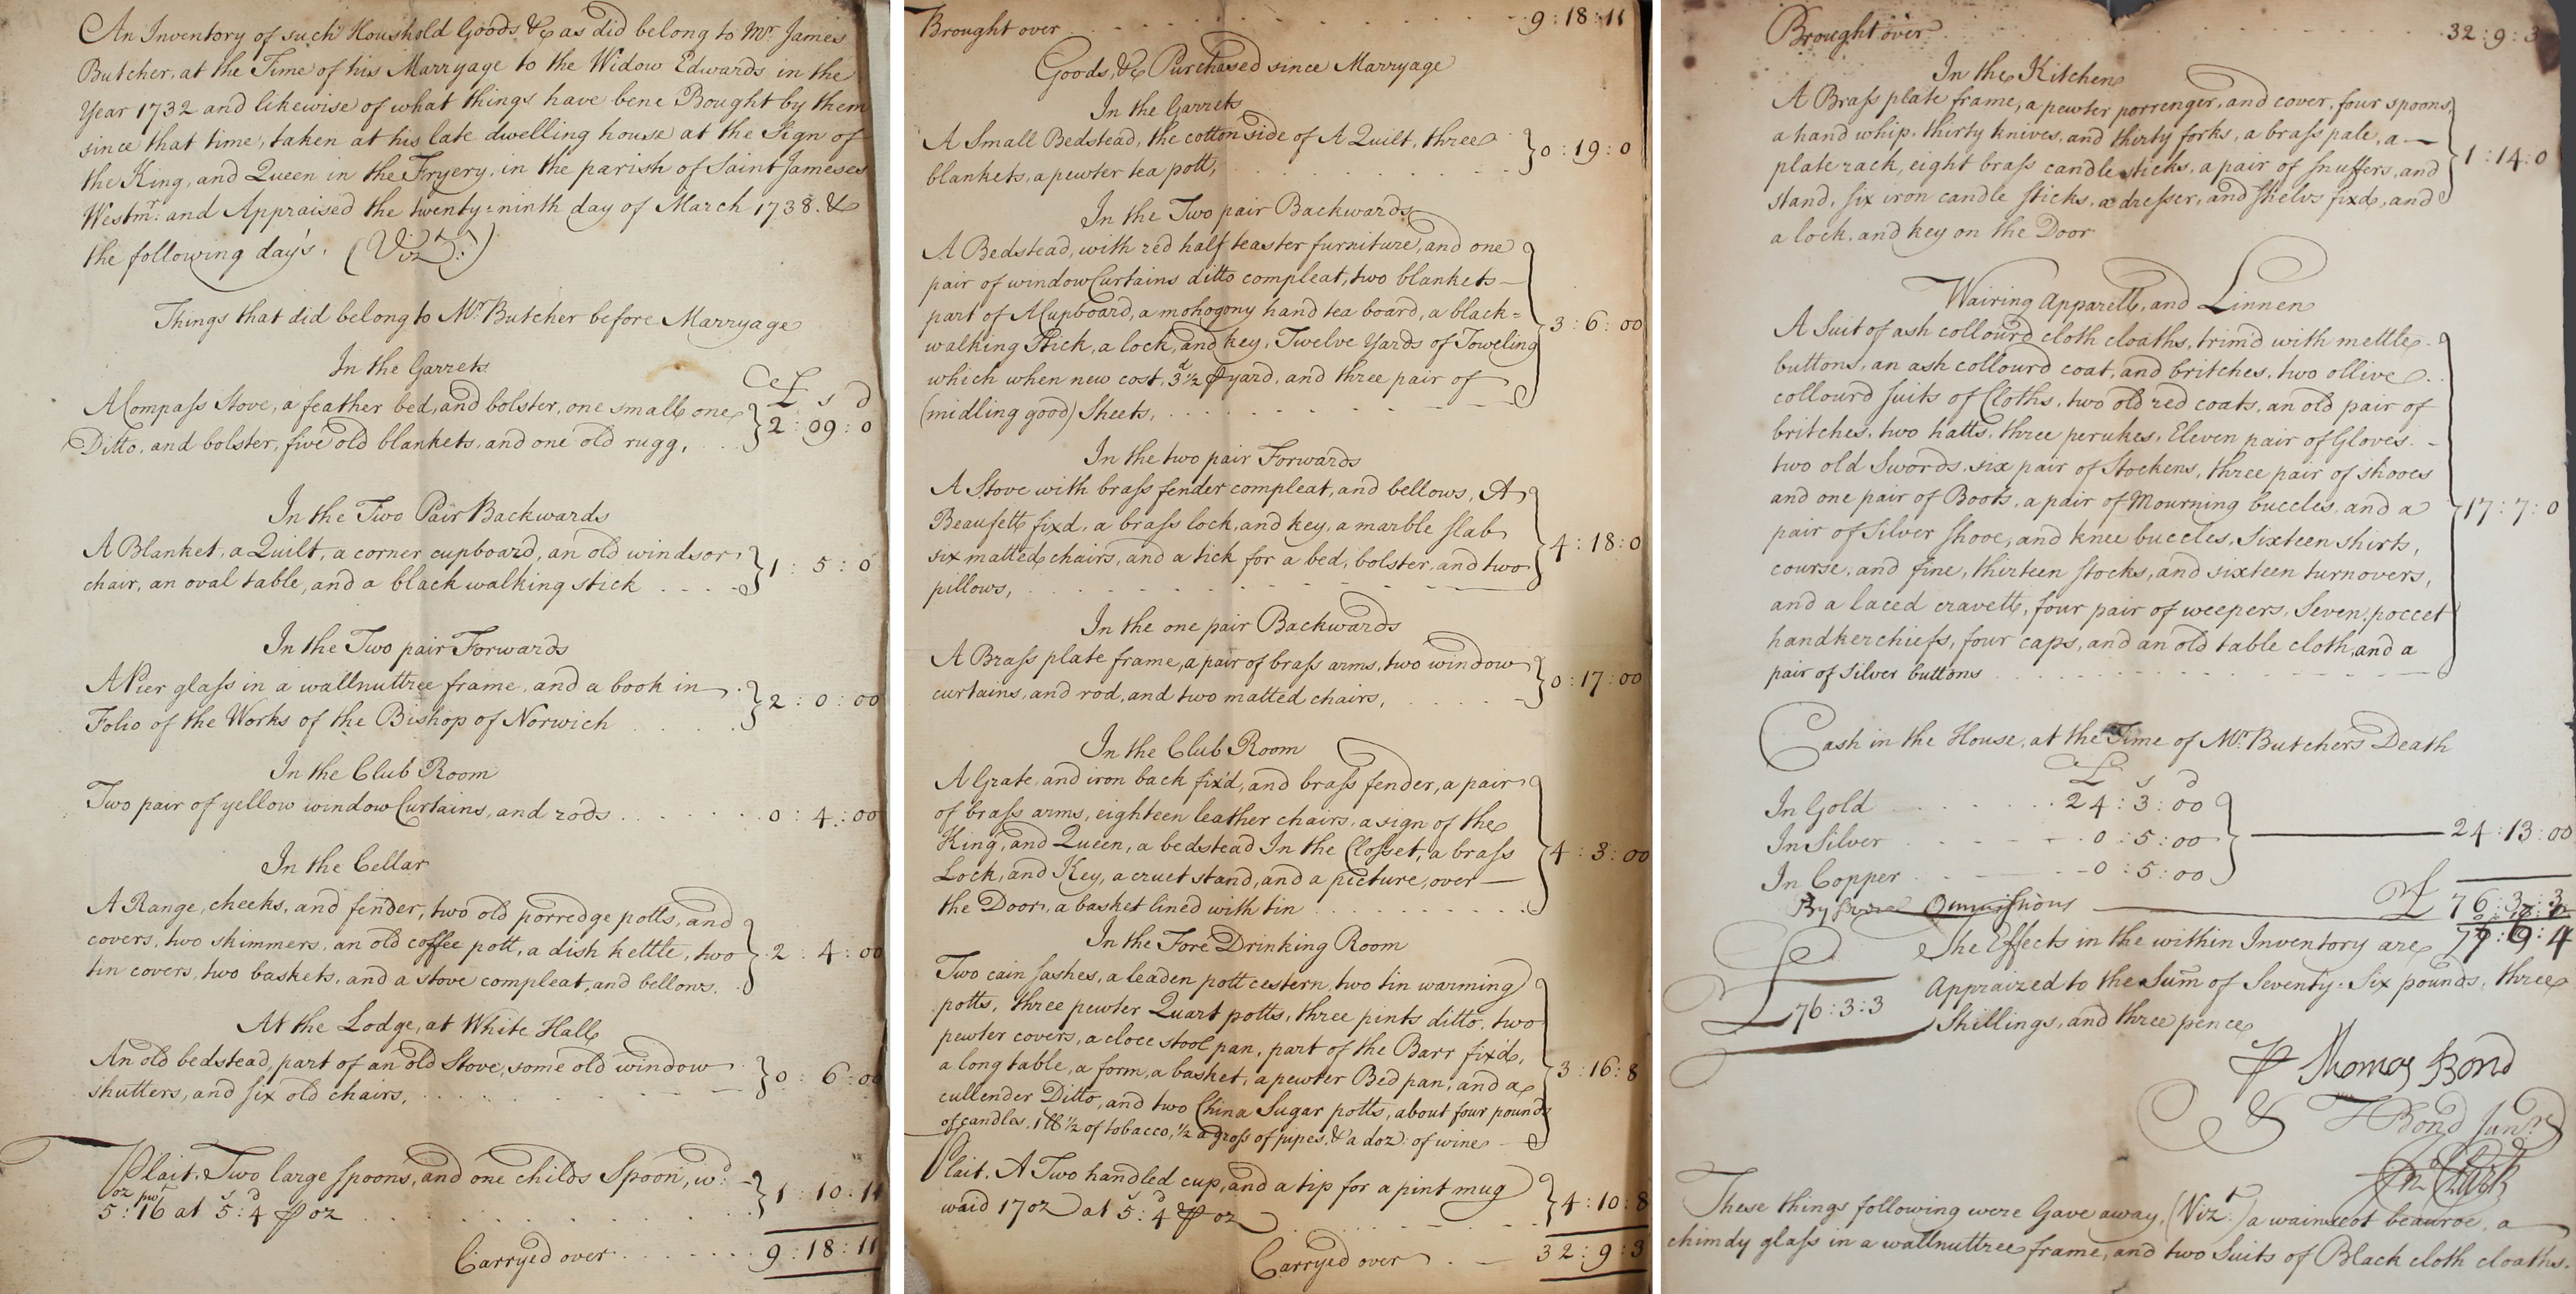 An Inventory of such Houshold Goods &c as did belong to Mr. James
Butcher, at the Time of his Marryage to the Widow Edwards in the
Year 1732 and likewise of what things have bene Bought by them
since that time, taken at his late dwelling house at the Sign of
the King, and Queen in the Fryery, in the parish of Saint Jameses
Westmr. and Appraised the twenty=ninth day of March 1738. &
the following day's. (Vizt.)
Things that did belong to Mr. Butcher before Marryage
In the Garrets
£ s d
A Compass Stove, a feather bed, and bolster, one small one
Ditto, and bolster, five old blankets, and one old rugg, 2 : 09 : 0
In the Two Pair Backwards
A Blanket, a Quilt, a corner cupboard, an old windsor
chair, an oval table, and a black walking stick 1 : 5 : 0
In the Two pair Forwards
A Pier glass in a wallnuttree frame, and a book in
Folio of the Works of the Bishop of Norwich 2 : 0 : 00
In the Club Room
Two pair of yellow window Curtains, and rods 0 : 4 : 00
In the Cellar
A Range, cheeks, and fender, two old porredge potts, and
covers, two skimmers, an old coffee pott, a dish kettle, two 2 : 4 : 00
tin covers, two baskets, and a stove compleat, and bellows.
At the Lodge, at White Hall
An old bedstead, part of an old Stove, some old window
shutters, and six old chairs, 0 : 6 : 00
Plait. Two large spoons, and one childs Spoon, wt.
oz pwt s d
5 : 16 at 5 : 4 ⅌ oz 1 : 10 : 11
Carryed over 9 : 18 : 11
Brought over 9 : 18 : 11
Goods, &c Purchased since Marryage
In the Garrets
A Small Bedstead, the cotton side of A Quilt, three
blankets, a pewter tea pott, 0 : 19 : 0
In the Two pair Backwards
A Bedstead, with red half teaster furniture, and one
pair of window Curtains ditto compleat, two blankets
part of A Cupboard, a mohogony hand tea board, a black= 3 : 6 : 00
walking Stick, a lock, and key, Twelve Yards of Toweling
which when new cost, 3d½ ⅌ yard, and three pair of
(midling good) Sheets,
In the two pair Forwards
A Stove with brass fender compleat, and bellows, A
Beausett fixd, a brass lock, and key, a marble slab
six matted chairs, and a tick for a bed, bolster, and two 4 : 18 : 0
pillows,
In the one pair Backwards
A Brass plate frame, a pair of brass arms, two window
curtains, and rod, and two matted chairs, 0 : 17 : 00
In the Club Room
A Grate, and iron back fix'd, and brass fender, a pair
of brass arms, eighteen leather chairs, a sign of the
King, and Queen, a bedstead In the Closset, a brass 4 : 3 : 00
Lock, and Key, a cruet stand, and a picture, over
the Door, a basket lined with tin
In the Fore Drinking Room
Two cain sashes, a leaden pott cestern, two tin warming
potts, three pewter Quart potts, three pints ditto, two
pewter covers, a cloce stool pan, part of the Barr fix'd,
a long table, a form, a basket, a pewter Bed pan, and a 3 : 16 : 8
cullender Ditto, and two China Sugar potts, about four pounds
of candles, 1 lb ½ of tobacco, ½ a gross of pipes, & a doz: of wine
Plait. A Two handled cup, and a tip for a pint mug
waid 17 oz at 5s : 4d ⅌ oz 4 : 10 : 8
Carryed over 32 : 9 : 3
Brought over 32 : 9 : 3
In the Kitchen
A Brass plate frame, a pewter porrenger, and cover, four spoons,
a hand whip, thirty knives, and thirty forks, a brass pale, a
plate rack, eight brass candlesticks, a pair of snuffers, and 1 : 14 : 0
stand, six iron candle sticks, a dresser, and shelvs fixd, and
a lock, and key on the Door
Wairing Apparell, and Linnen
A Suit of ash collourd cloth cloaths, trimd with mettle
buttons, an ash collourd coat, and britches, two ollive
collourd suits of Cloths, two old red coats, an old pair of
britches, two hatts, three perukes, Eleven pair of Gloves.
two old Swords, six pair of Stockens, three pair of shooes
and one pair of Boots, a pair of Mourning buccles, and a 17 : 7 : 0
pair of Silver shooe, and knee buccles, Sixteen shirts,
course, and fine, thirteen stocks, and sixteen turnovers,
and a laced cravett, four pair of weepers, Seven poccet
handkerchiefs, four caps, and an old table cloth, and a
pair of Silver buttons
Cash in the House, at the Time of Mr. Butchers Death
£ s d
In Gold 24 : 3 : 00
In Silver 0 : 5 : 00 24 : 13 : 00
In Copper 0 : 5 : 00
£ 76 : 3 : 3
By Omissions
The Effects in the within Inventory are
£76 : 3 : 3 Appraized to the Sum of Seventy Six pounds, three
Shillings, and three pence
⅌ Thomas Bond
& T Bond Junr.
These things following were Gave away, (Vizt.) a wainscot beauroe, a
chimdy glass in a wallnuttree frame, and two Suits of Black cloth cloaths.